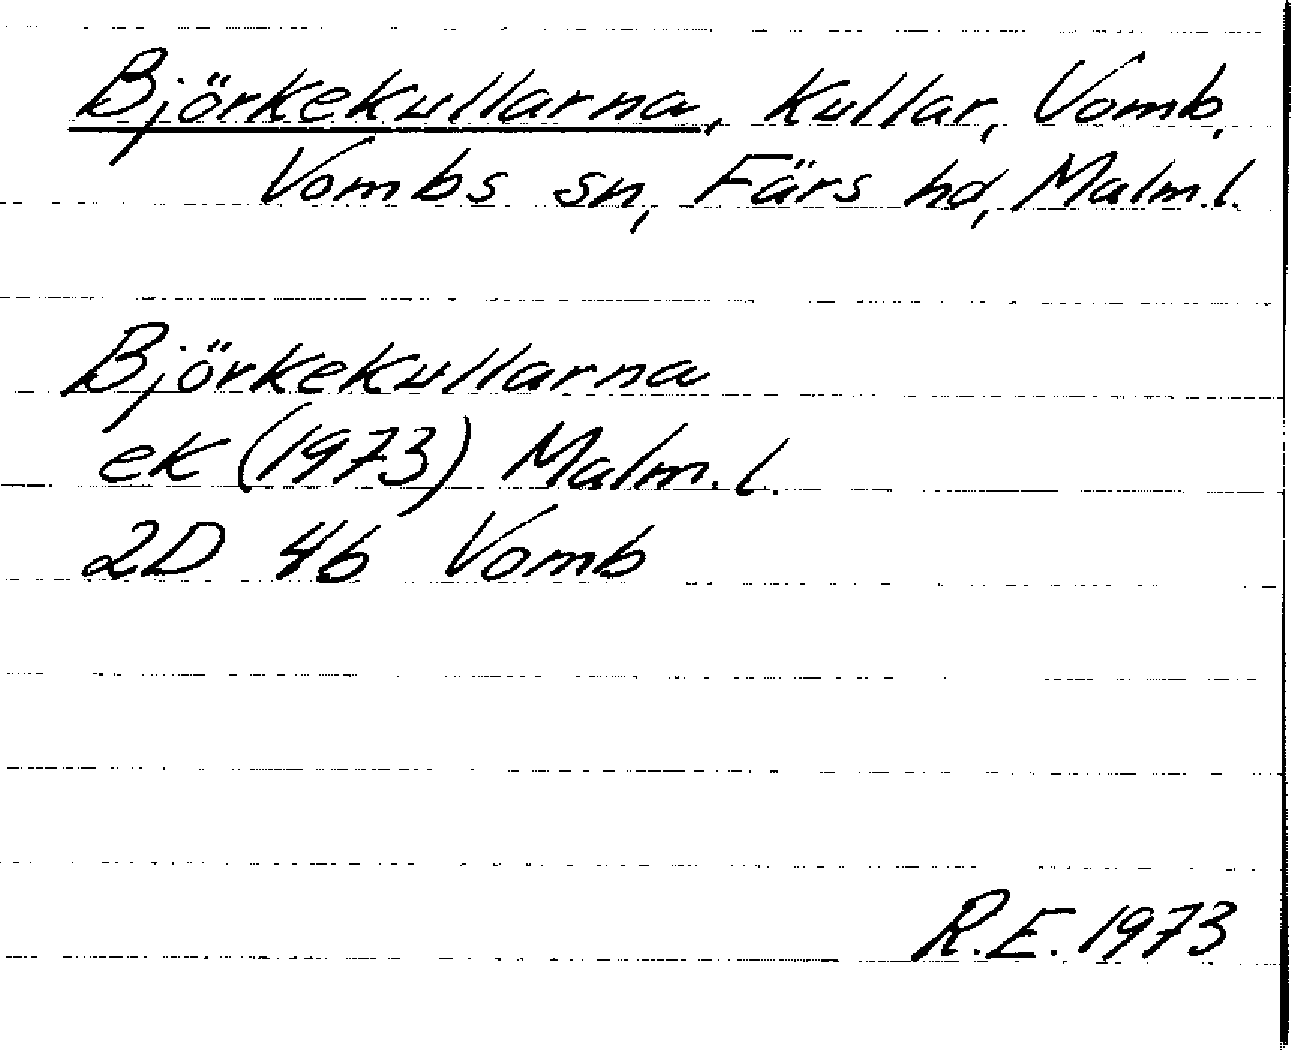 Björkekullarna, kullar, Vomb,
Vombs sn, Färs hd, Malm.l.
Björkekullarna
ek (1973) Malm.l.
2D 4b Vomb
R.E. 1973